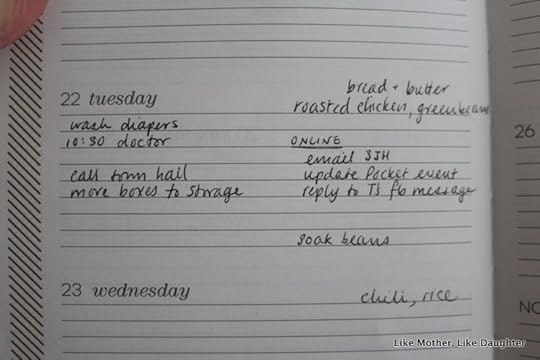 bread + butter
22 tuesday
roasted chicken, greenbeans
wash diapers
10:30 doctor
ONLINE
email SJH
call town hall
update Pocket event
more boxes to storage
reply to T's fb message
26
soak beans
23 wednesday
chili, rice
NO
Like Mother, Like Daughter